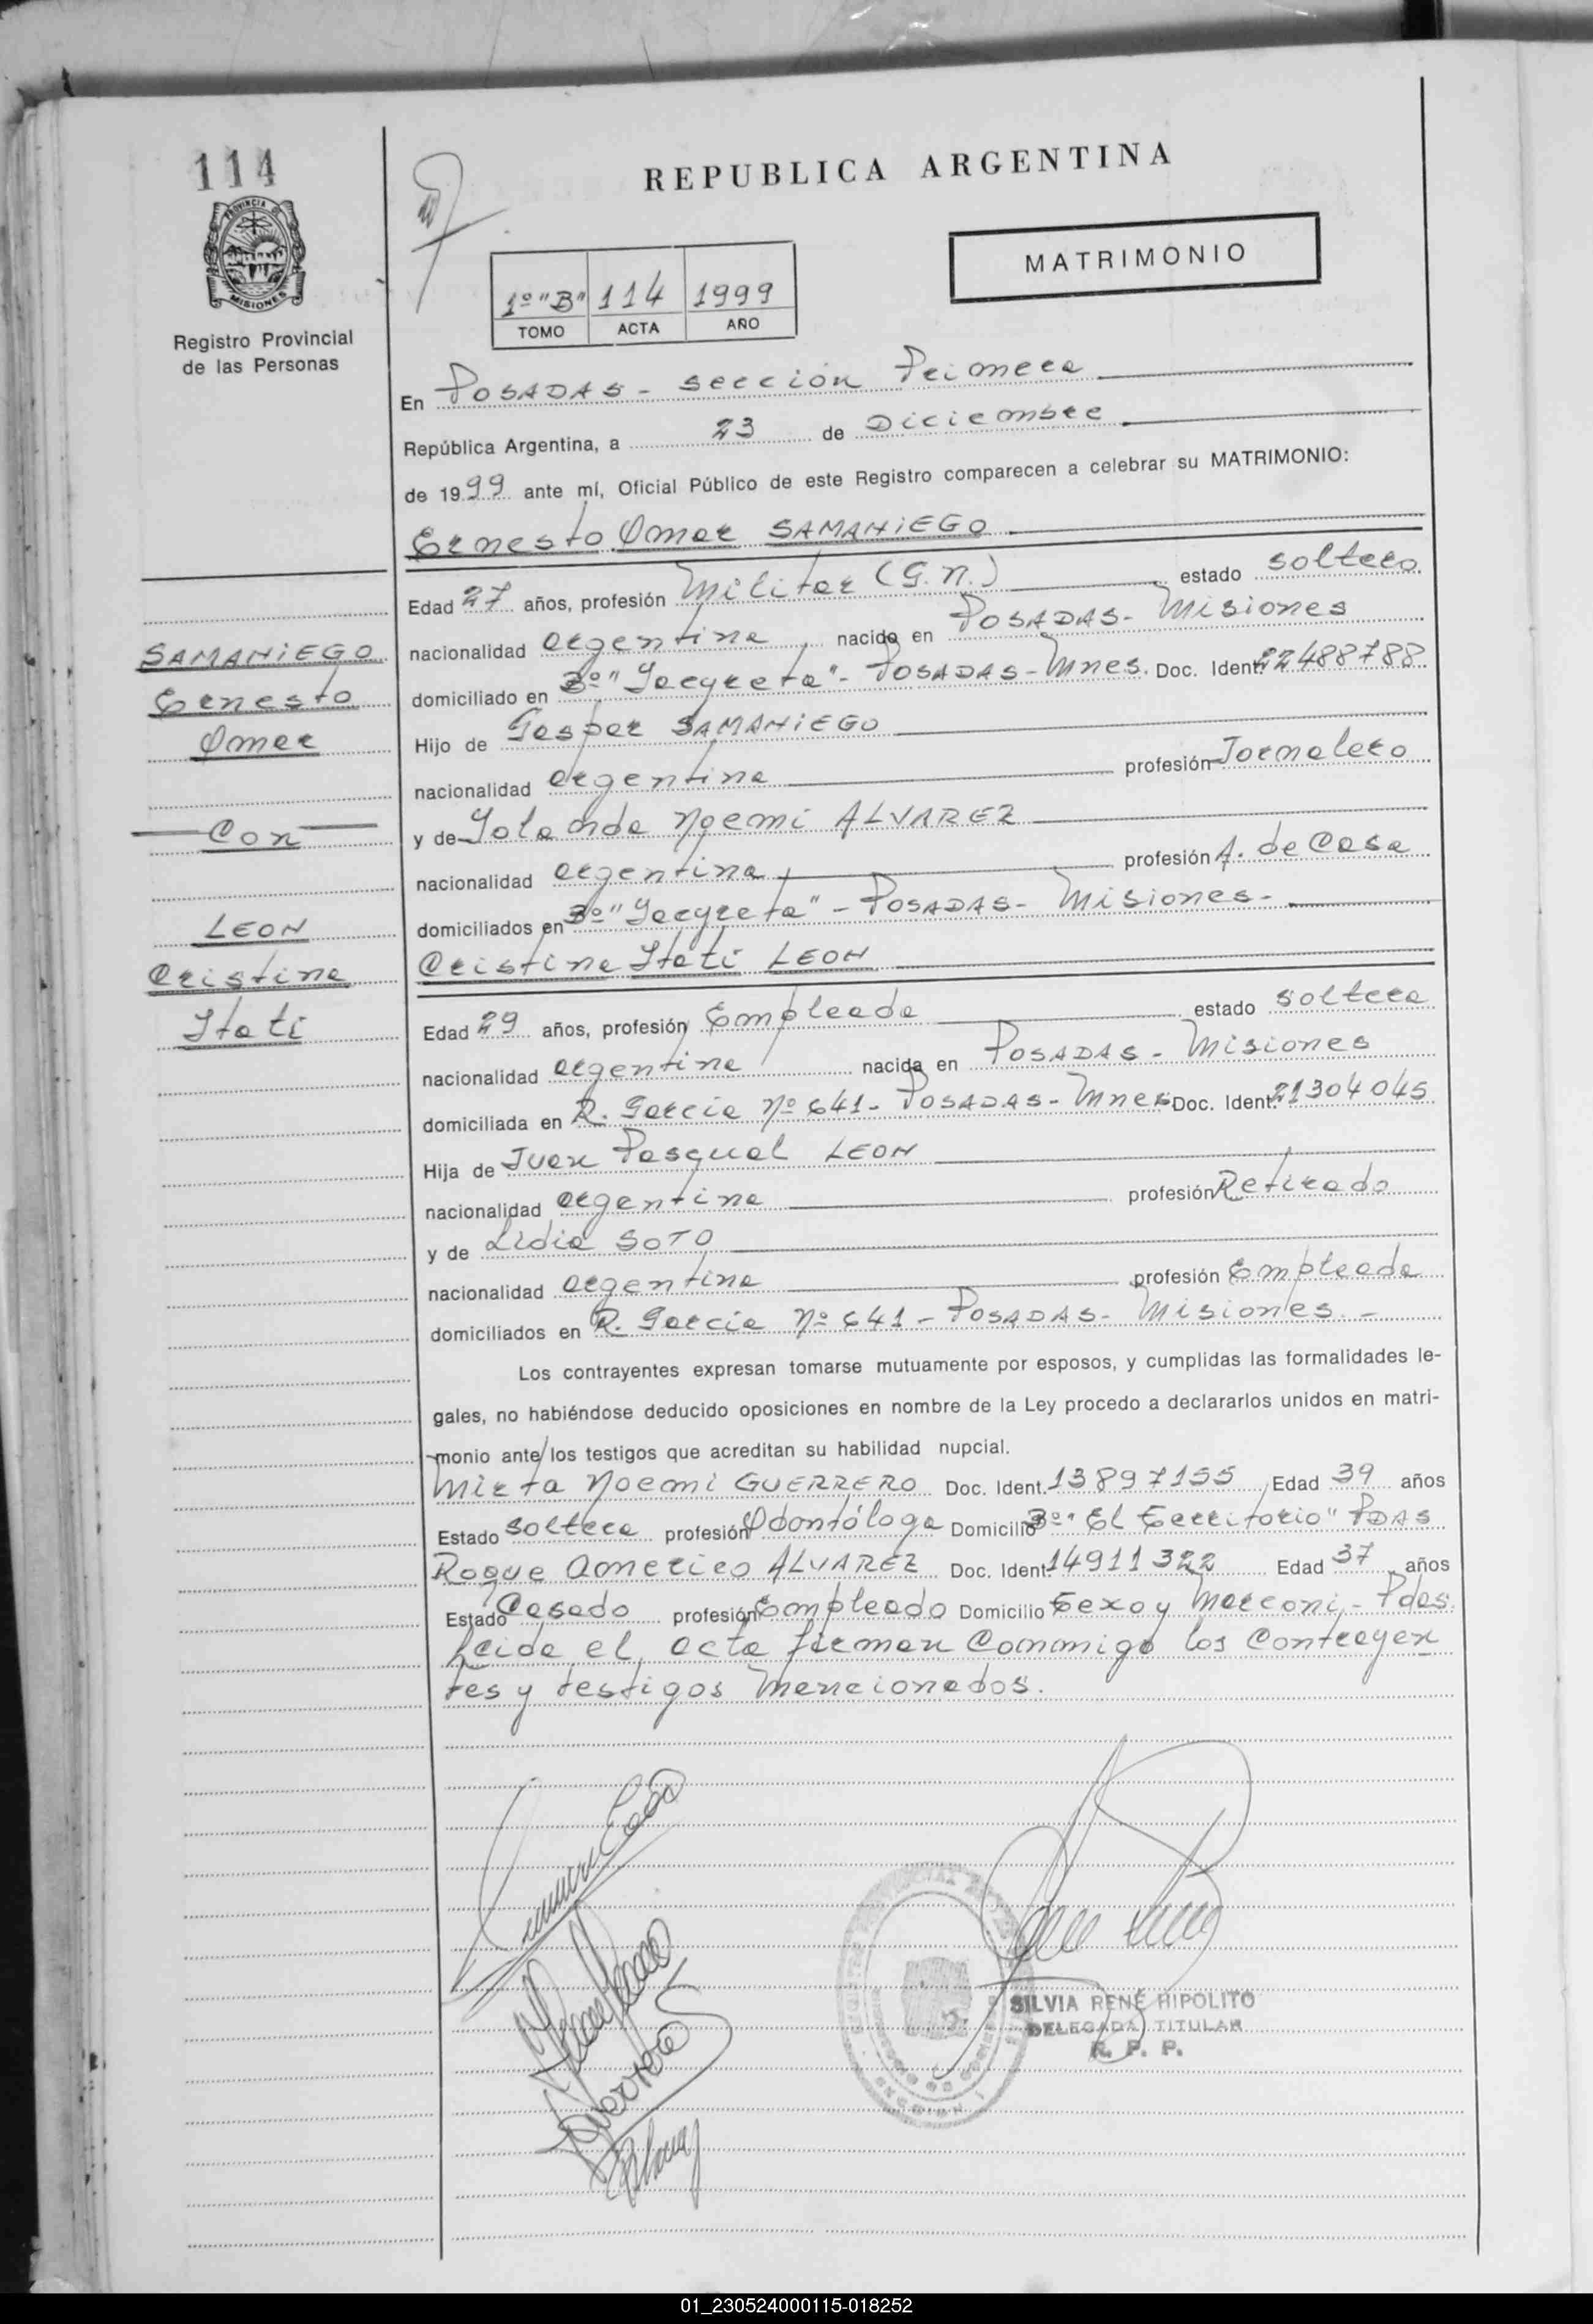 114
REPUBLICA ARGENTINA
PROVINCIA
MISIONES
Registro Provincial
de las Personas
MATRIMONIO
1º "B" 114 1999
TOMO ACTA AÑO
En POSADAS - sección Primera
República Argentina, a 23 de Diciembre
de 1999 ante mí, Oficial Público de este Registro comparecen a celebrar su MATRIMONIO:
Ernesto Omar SAMANiEGO
Edad 27 años, profesión Militar (G.N.) estado soltero
nacionalidad argentina nacido en POSADAS- Misiones
domiciliado en Bº "Yacyreta" - POSADAS - Mnes. Doc. Ident. 22488788
Hijo de Gaspar SAMANiEGO
nacionalidad argentina profesión Jornalero
y de Yolanda Noemi ALVAREZ
nacionalidad argentina profesión A. de Casa
domiciliados en Bº "Yacyreta" - POSADAS- Misiones-
Cristina Itatí LEON
Edad 29 años, profesión Empleada estado soltera
nacionalidad argentina nacida en POSADAS - Misiones
domiciliada en R. García Nº 641- POSADAS- Mnes Doc. Ident. 21304045
Hija de Juan Pasqual LEON
nacionalidad argentina profesión Retirado
y de Lidia SOTO
nacionalidad argentina profesión Empleada
domiciliados en R. García Nº 641 - POSADAS- Misiones. -
Los contrayentes expresan tomarse mutuamente por esposos, y cumplidas las formalidades le-
gales, no habiéndose deducido oposiciones en nombre de la Ley procedo a declararlos unidos en matri-
monio ante los testigos que acreditan su habilidad nupcial.
Mirta Noemi GUERRERO Doc. Ident. 13897155 Edad 39 años
Estado soltera profesión Odontóloga Domicilio Bº "El Territorio" PDAS
Roque Americo ALVAREZ Doc. Ident. 14911322 Edad 37 años
Estado Casado profesión Empleado Domicilio y Marconi - Pdas.
Leida el acta firman Conmigo los Contrayen
tes y testigos Mencionados.
SAMANiEGO
Ernesto
Omar
Con
LEON
Cristina
Itatí
SILVIA RENÉ HIPOLITO
DELEGADA TITULAR
R. P. P.
01_230524000115-018252